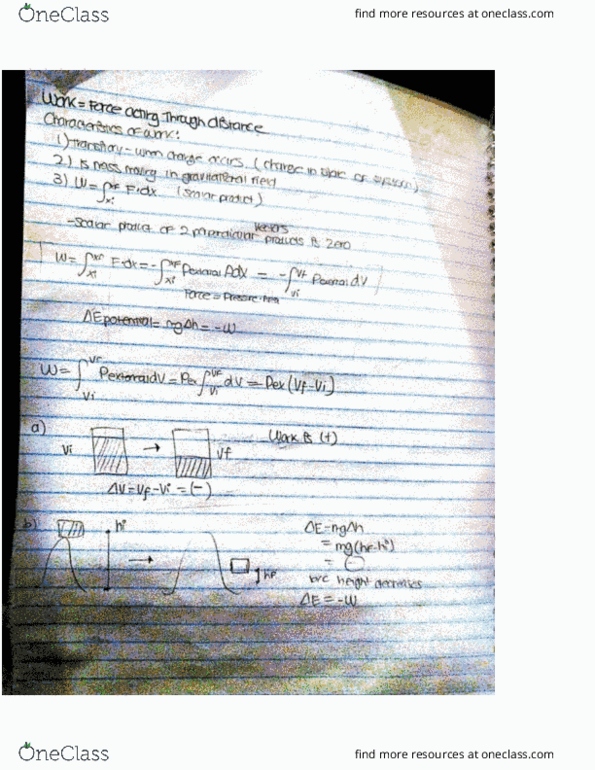 OneClass
find more resources at oneclass.com
Work = Force acting Through distance
Characteristics of work:
1) Transitory - when change occurs. (change in state of system)
2.) Is mass moving in gravitational field
3) W = ∫xi^xf F·dx (scalar product)
-scalar product of 2 perpendicular vectors products is zero
W = ∫xi^xf F·dx = -∫xi^xf Pexternal Adx = -∫Vi^Vf Pexternal dV
Force = Pressure·Area
ΔEpotential = mgΔh = -W
W = ∫Vi^Vf Pexternal dV = Pex ∫Vi^Vf dV = Pex (Vf - Vi)
a)
Vi → Vf
Work is (+)
ΔV = Vf - Vi = (-)
b)
hi → hf
ΔE = mgΔh
= mg(hf - hi)
= (-)
height decreases
ΔE = -W
OneClass
find more resources at oneclass.com